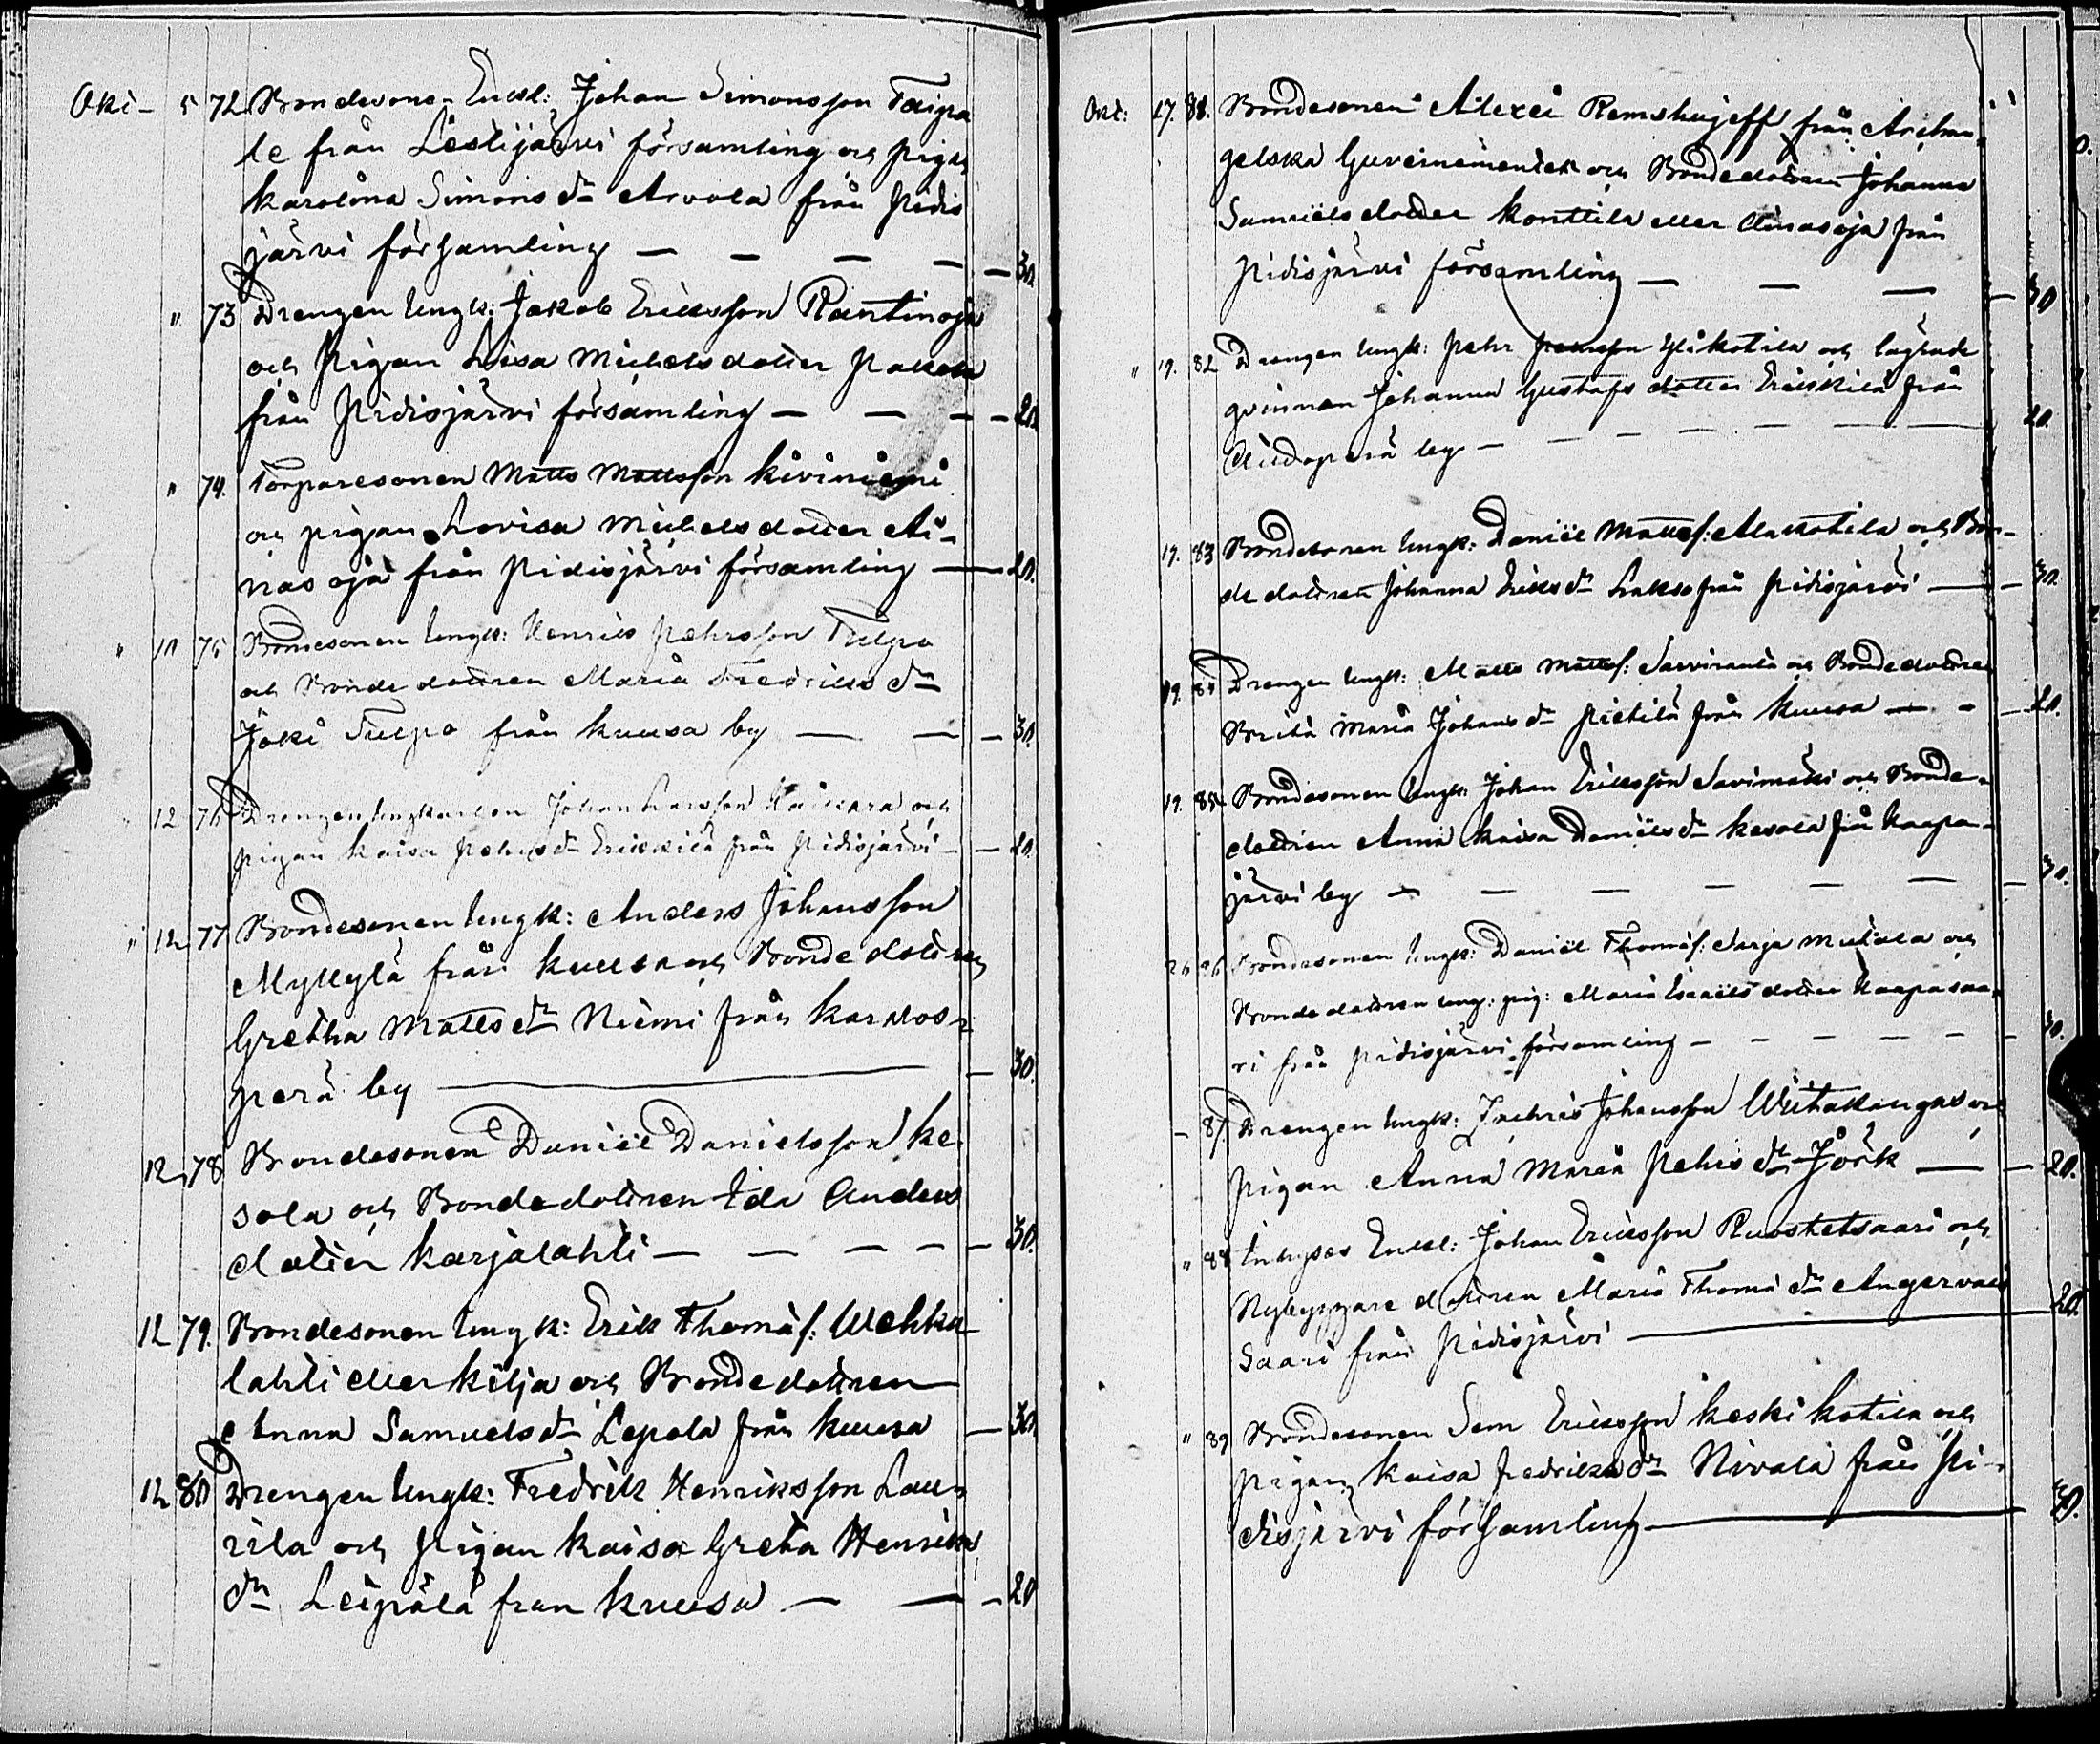 Okt- 5 72 Bondesone- Enkl: Johan Simonsson Taipa
le från Lestijärvi församling och pigan
Karolina Simons dr Arvola från Pidis
järvi församling — — — — — 30.
" 73 Drengen Ungk: Jakob Eriksson Rantinoja
och Pigan Lovisa Michelsdotter
från Pidisjärvi församling — — — — 20.
" 74. Torparesonen Matts Mattsson Kiviniemi
och pigan Lovisa Michelsdotter Ai-
nasoja från Pidisjärvi församling — 20.
" 10 75 Bondesonen Ungk: Henrik Pehrsson Tulpo
och Bondedottren Maria Fredriks dr
Joki Tulpo från Kuusa by — — — 30.
" 12 76 Drengen Ungkarlen Johan
pigan Kaisa Pehrs dr Erikkilä från Pidisjärvi — — 20.
" 12 77 Bondesonen Ungk: Anders Johansson
Myllylä från Kuusa och Bondedottren
Gretha Matts dr Niemi från Karvos-
perä by — — 30.
12 78 Bondesonen Daniel Danielsson Ke-
sola och Bondedottren Ida Anders
dotter Karjalahti — — — — — 30.
12 79. Bondesonen Ungk: Erik Thomæs: Wehka
lahti eller Kilja och Bondedottren
Anna Samuels dr Lepola från Kuusa — 30
12 80 Drengen Ungk: Fredrik Henriksson Lau-
rila och Pigan Kaisa Greta Henriks
dr Leipälä fran Kuusa — — — 20
Okt: 17. 81. Bondesonen Alexei Remshujeff från Archan-
gelska Guvernementet och Bondedottren Johanna
Samuelsdotter Konttila eller Ainasoja från
Pidisjärvi församling — — — — 30
" 19. 82 Drengen Ungk: Pehr Pehrsson Ylikotila och lägrade
qvinnan Johanna Gustafs dotter Erikkilä från
Aidoperä by — — — — — — 20.
19. 83 Bondesonen Ungk: Daniel Mattss: Alakotila och Bon-
dedottren Johanna Eriks dr Laakso från Pidisjärvi — — 30.
19. 84 Drengen Ungk: Matts Mattss: Sarviranta och Bondedottren
Brita Maria Johans dr Pietilä från Kuusa — - — 20.
19. 85 Bondesonen Ungk: Johan Eriksson Savimäki och Bonde-
dottren Anna Kaisa Daniels dr Kesola från Haapa-
järvi by — — — — — — — 30.
26 86 Bondesonen Ungk: Daniel Thomæs: Sarja och
Bondedottren ung: pig: Maria Israelsdotter Haapasaa-
ri från Pidisjärvi församling — — — — — 30.
— 87 Drengen Ungk: Zachris Johansson Wiitakangas och
Pigan Anna Maria Pehrs dr Jöök — — 20.
" 88 Inhyses Enkl: Johan Eriksson Ruostetsaari och
Nybyggare dottren Maria Thomæ dr Angerva
Saari från Pidisjärvi — 20.
" 89 Bondesonen Sem Eriksson Keskikotila och
Pigan Kaisa Fredriks dr Nivala från Pi-
disjärvi församling — 30.